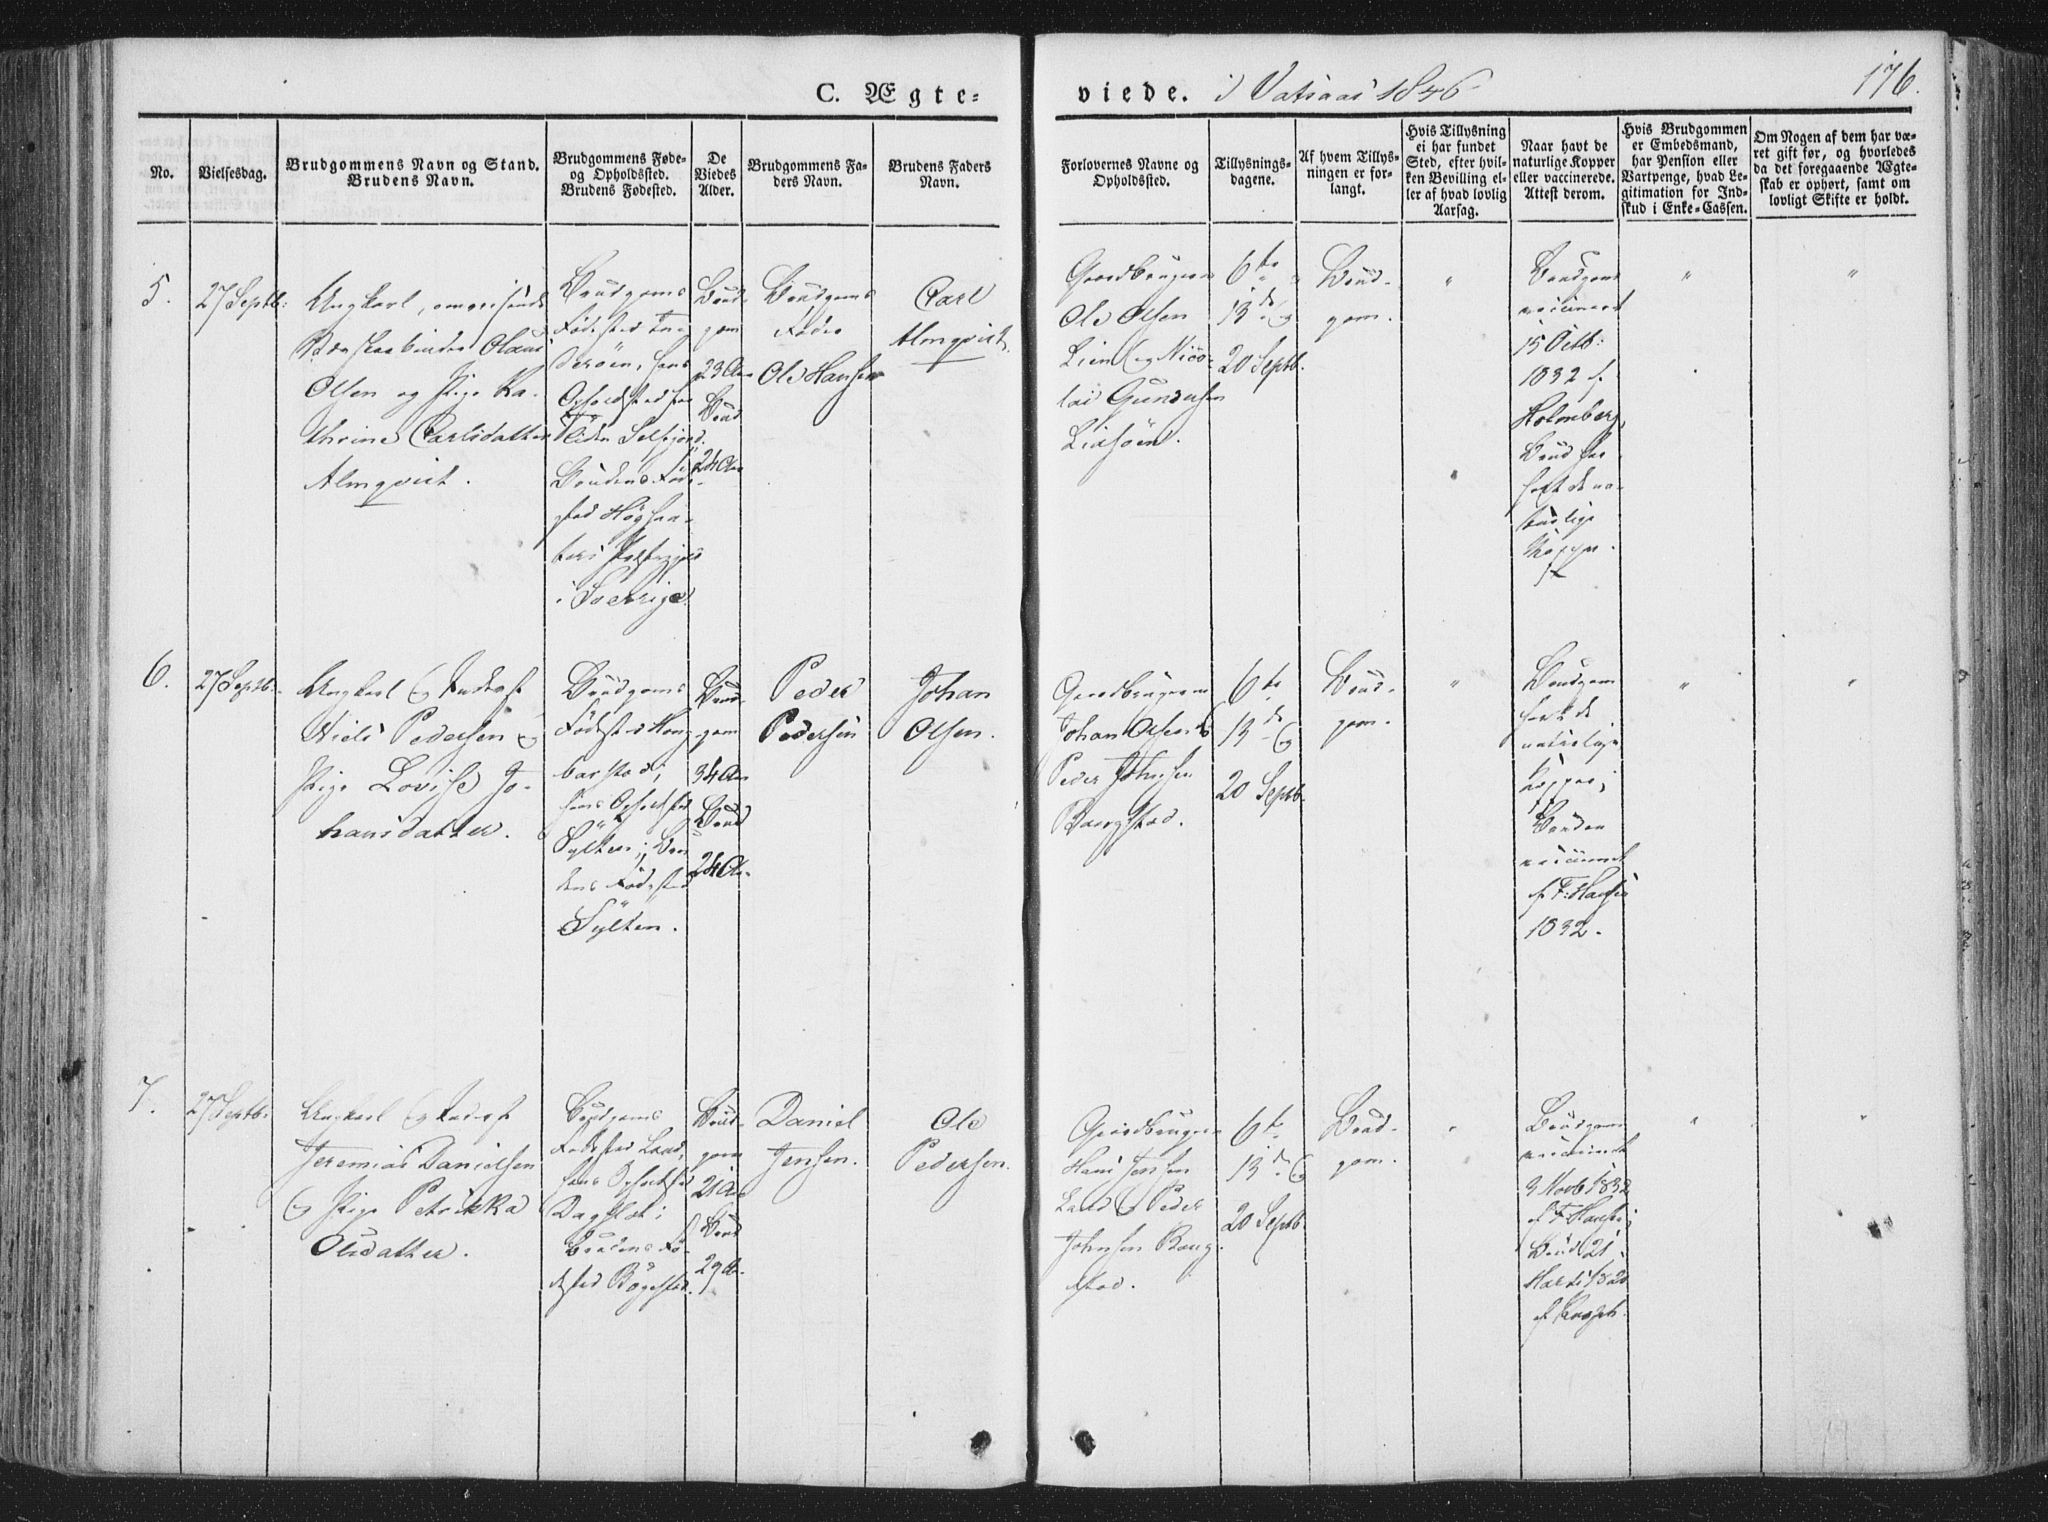 C. Ægte-
viede. i Vatsaas 1846
176.
No.
Vielsesdag.
Brudgommens Navn og Stand.
Brudens Navn.
Brudgommens Føde-
og Opholdssted.
Brudens Fødested.
De
Viedes
Alder.
Brudgommens Fa-
ders Navn.
Brudens Faders
Navn.
Forlovernes Navne og
Opholdssted.
Tillysnings-
dagene.
Af hvem Tillys-
ningen er for-
langt.
Hvis Tillysning
ei har fundet
Sted, efter hvil-
ken Bevilling el-
ler af hvad lovlig
Aarsag.
Naar havt de
naturlige Kopper
eller vaccinerede.
Attest derom.
Hvis Brudgommen
er Embedsmand,
har Pension eller
Vartpenge, hvad Le-
gitimation for Ind-
skud i Enke-Cassen.
Om Nogen af dem har væ-
ret gift før, og hvorledes
da det foregaaende Ægte-
skab er ophørt, samt om
lovligt Skifte er holdt.
5.
27 Septb:
Ungkarl, omreisende
Olaus
Olsen og Pige Ka-
thrine Carlsdatter
Almqvist.
Brudgoms
Fødested In-
derøen, hans
Opholdsted
Selfjord.
Brudens Føde-
sted
i Sverrige
Brud-
gom
23 Aar
Brud
24 Aar
Brudgoms
Fader
Ole Hansen
Carl
Almqvist.
Gaardbrugerne
Ole Olsen
Lien og Nico-
lai Gundersen
Lidsöen.
6te
13de og
20 Septb.
Brud-
gom.
"
Brudgom
vaccineret
15 Octb:
1832 f.
Holmberg,
Brud har
havt de na-
turlige
Kopper.
"
"
6.
27 Septb.
Ungkarl og Inderst
Niels Pedersen og
Pige Lovise Jo-
hansdatter.
Brudgoms
Fødested
hans Opholdsted
Sylten; Bru-
dens Fødested
Sylten.
Brud-
gom
34 Aar
Brud
24 Aar
Peder
Pedersen
Johan
Olsen.
Gaardbrugerne
Johan Olsen &
Peder Johnsen
Baugstad.
6te
13de og
20 Septb.
Brud-
gom.
"
Brudgom
havt de
naturlige
Kopper;
Bruden
vaccineret
af F: Hansen
1832.
"
"
7.
27 Septb.
Ungkarl og Inderst
Jeremias Danielsen
og Pige Petrikka
Olsdatter.
Brudgoms
Fødested Land,
hans Opholdsted
Dagslet;
Brudens Fø-
dested Bøgestad.
Brud-
gom
21 Aar
Brud
29 Aar
Daniel
Jensen.
Ole
Pedersen.
Gaardbrugerne
Hans Jensen
Land og Peder
Johnsen Baug-
stad.
6te
13de og
20 Septb.
Brud-
gom.
"
Brudgom
vaccineret
9 Novb 1832
af F. Hansen;
Brud 21
Marts 1820
af
"
"